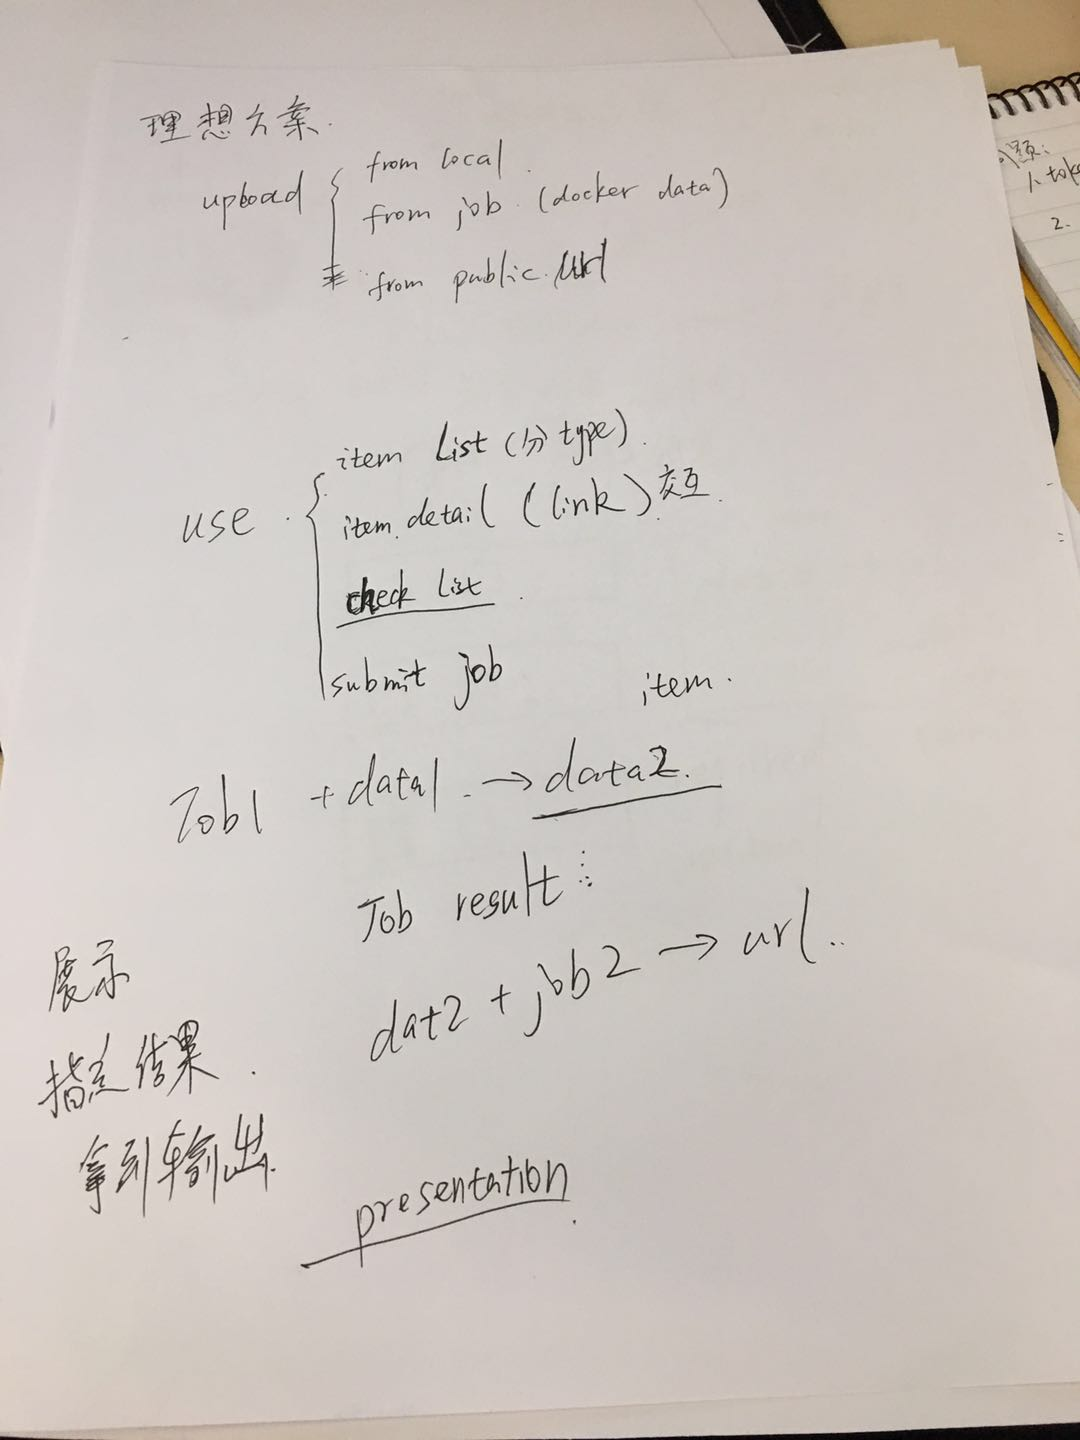 理想方案.
upload
from local.
from job. (docker data)
from public. url
use.
item List (分 type).
item. detail (link) 交互.
check list.
submit job
item.
Job1 + data1. → data2.
Job result
dat2 + job2 → url..
展示
结果.
拿到输出.
presentation.
问题:
1.
2.